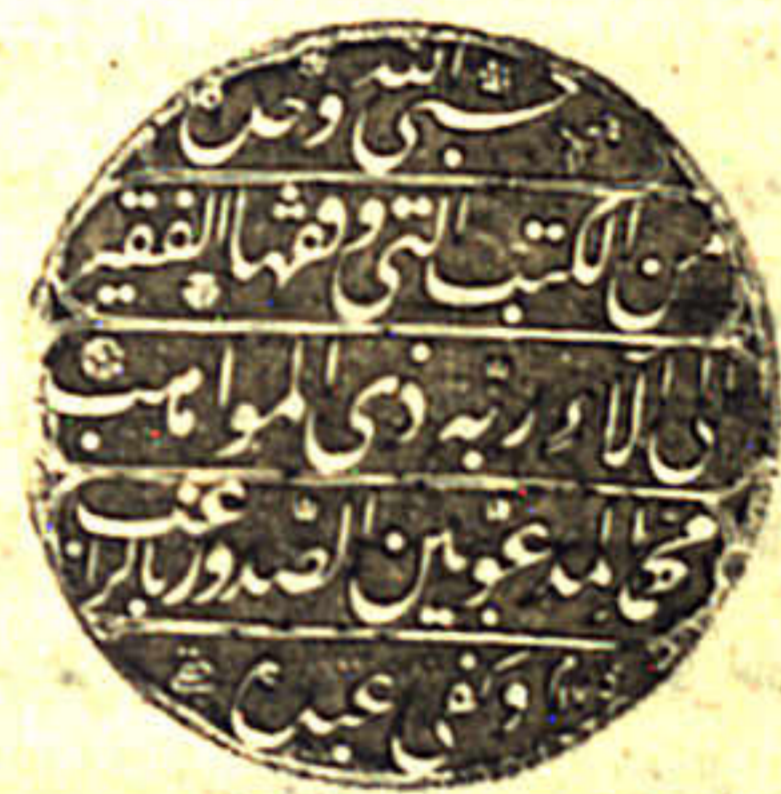 حسبي الله وحده
من الكتب التي وقفها الفقير
الى آلاء ربه ذي المواهب
محمد المدعو بين الصدور بالراغب
وفي عهده